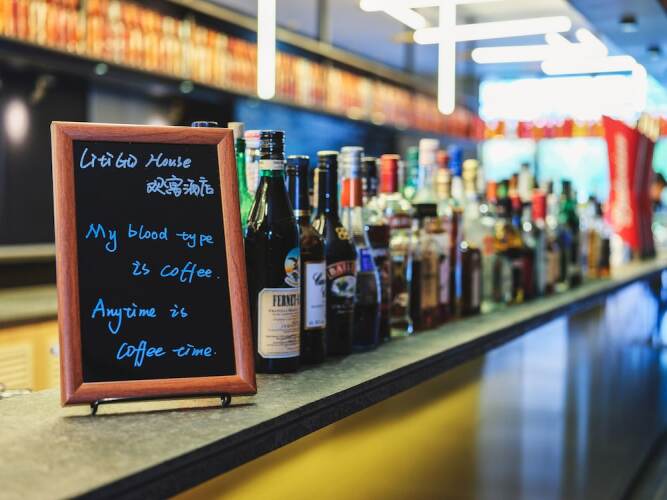 LitiGo House
观寓酒店
My blood type
is coffee.
Anytime is
coffee time.
FERNET